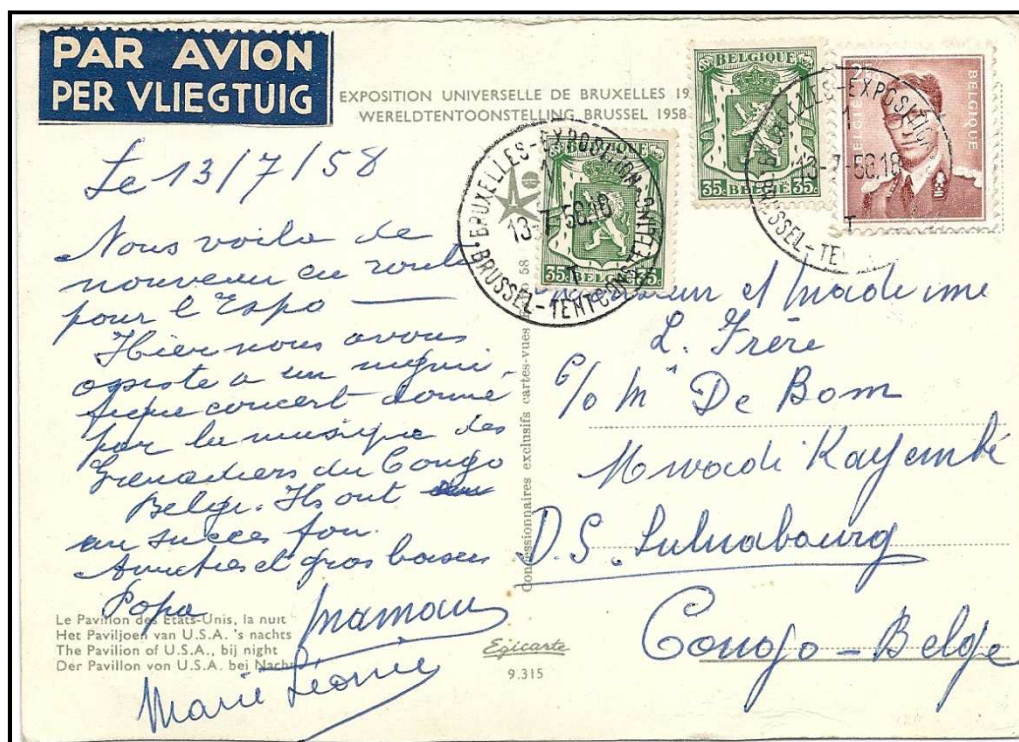 PAR AVION
PER VLIEGTUIG
EXPOSITION UNIVERSELLE DE BRUXELLES 19
WERELDTENTOONSTELLING BRUSSEL 1958
BELGIQUE
35c BELGIË 35c
BELGIQUE
BELGIË
BRUXELLES-EXPOSITION
1
13-7-58.18
T
BRUSSEL-TENTOONSTELLING
BRUXELLES-EXPOSITION
1
13-7-58.18
T
BRUSSEL-TE
Le 13/7/58
Nous voila de
nouveau en route
pour l'Expo
Hier nous avons
assiste a un magni-
fique concert donné
par la musique des
Grenadiers du Congo
Belge. Ils ont
un succes fou.
Amities et gros baisers
Papa maman
Marie Léonie
Monsieur et Madame
L. Frère
c/o Mr De Bom
Mwadi Kayembé
D.S. Luluabourg
Congo-Belge
Le Pavillon des États-Unis, la nuit
Het Paviljoen van U.S.A. 's nachts
The Pavilion of U.S.A., bij night
Der Pavillon von U.S.A. bei Nacht
Concessionnaires exclusifs cartes-vues
58
Egicarte
9.315